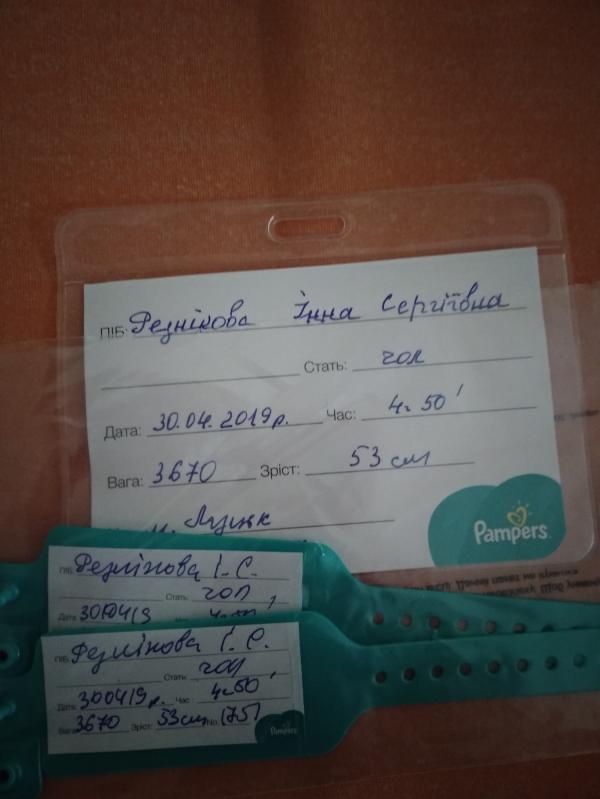 ПІБ: Резнікова Інна Сергіївна
Стать: чол
Дата: 30.04.2019р. Час: 4г 50'
Вага: 3670 Зріст: 53 см
м. Луцьк
Pampers
ПІБ: Резнікова І. С.
Стать: чол
Дата: 300419
ПІБ: Резнікова І. С.
Стать: чол
Дата: 300419р. Час: 4г50'
Вага: 3670 Зріст: 53см No. 1751
Pampers